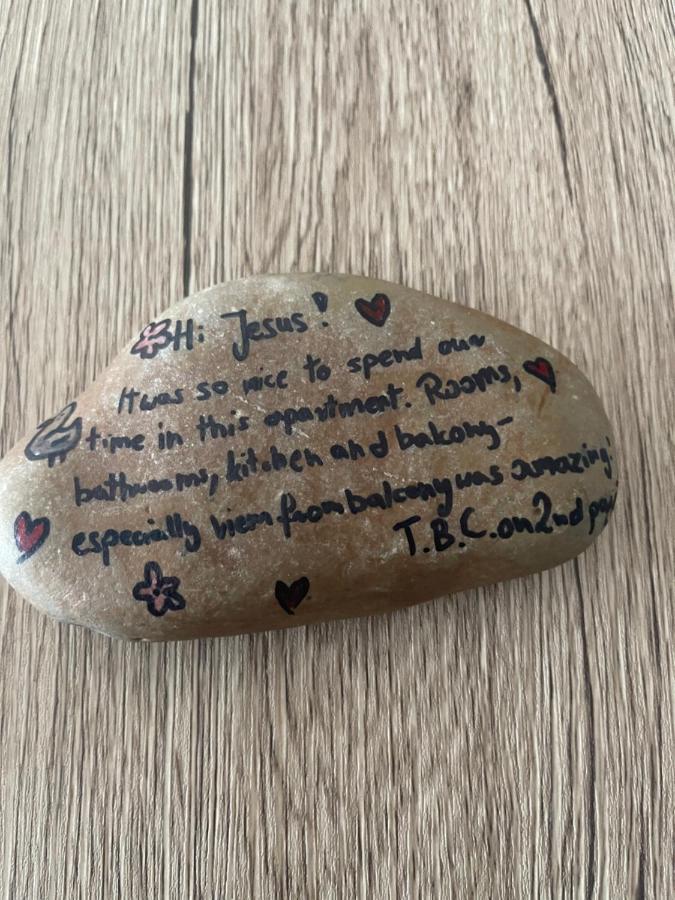 Hi Jesus!
It was so nice to spend our
time in this apartment. Rooms,
bathrooms, kitchen and balcony-
especially view from balcony was amazing!
T.B.C. on 2nd